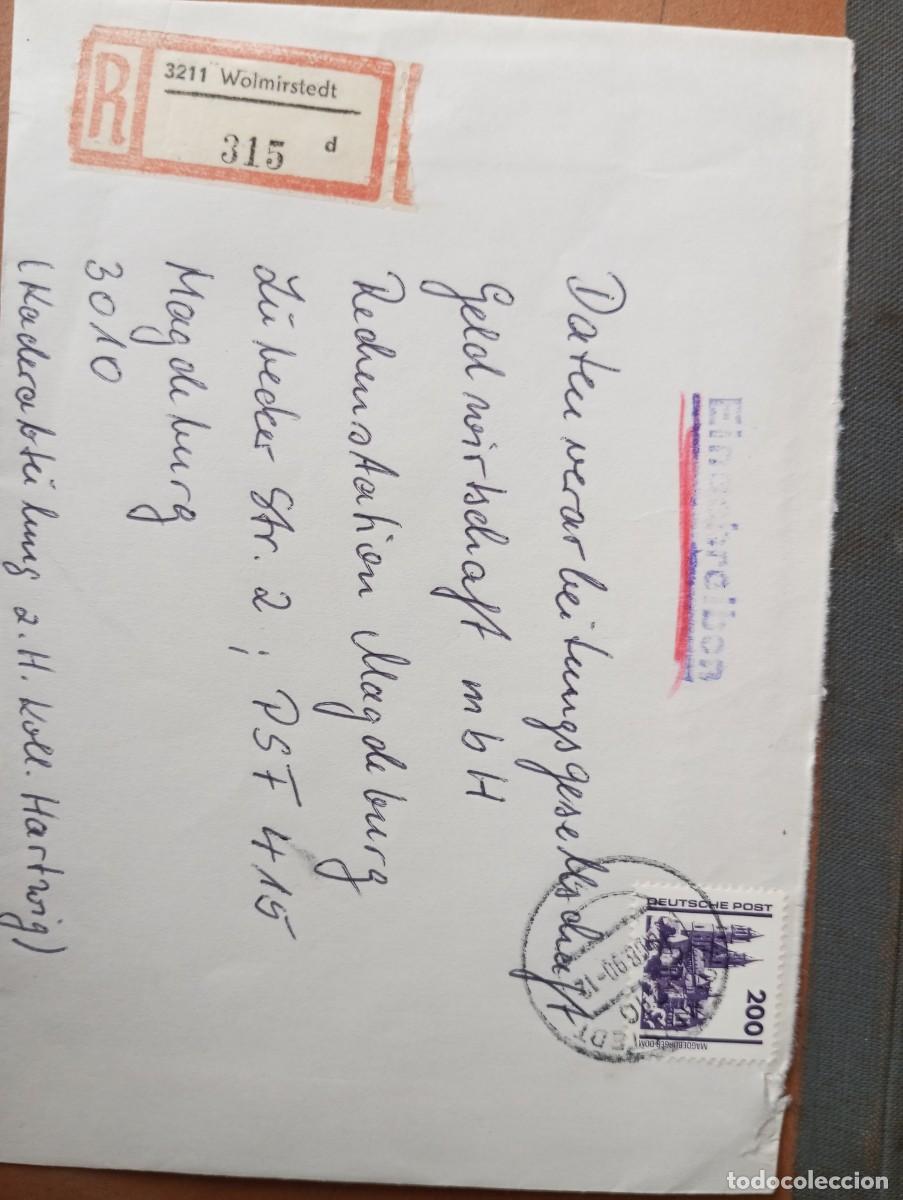 R
3211 Wolmirstedt
315 d
Einschreiben
Datenverarbeitungsgesellschaft
Geldwirtschaft mbH
Rechenstation Magdeburg
Lübecker Str. 2; PSF 415
Magdeburg
3010
(Kaderabteilung z.H. Koll. Hartwig)
DEUTSCHE POST
200
MAGDEBURGER DOM
todocoleccion